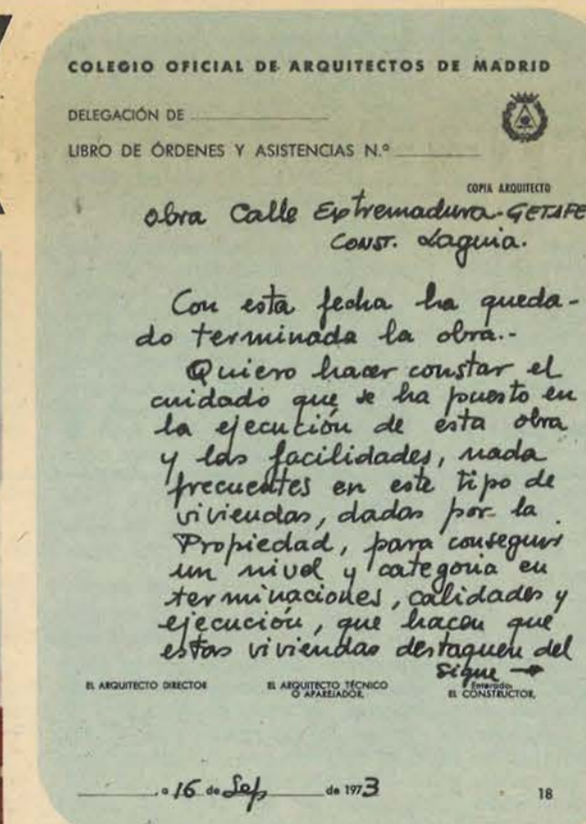 COLEGIO OFICIAL DE ARQUITECTOS DE MADRID
DELEGACIÓN DE
LIBRO DE ÓRDENES Y ASISTENCIAS N.º
COPIA ARQUITECTO
Obra Calle Extremadura-GETAFE
CONST. Laguia.
Con esta fecha ha queda-
do terminada la obra.-
Quiero hacer constar el
cuidado que se ha puesto en
la ejecución de esta obra
y las facilidades, nada
frecuentes en este tipo de
viviendas, dadas por la
Propiedad, para conseguir
un nivel y categoria en
terminaciones, calidades y
ejecución, que hacen que
estas viviendas destaquen del
Sigue →
EL ARQUITECTO DIRECTOR EL ARQUITECTO TÉCNICO O APAREJADOR, Enterado: EL CONSTRUCTOR,
, a 16 de Sep de 1973 18